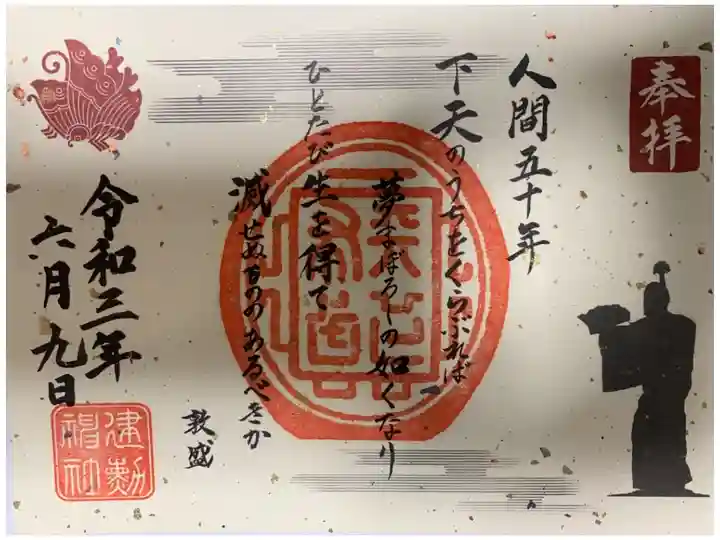 奉拝
人間五十年
下天のうちをくらぶれば
夢まぼろしの如くなり
ひとたび生を得て
滅せぬもののあるべきか
敦盛
令和三年
六月九日
建勲
神社
天下
布武